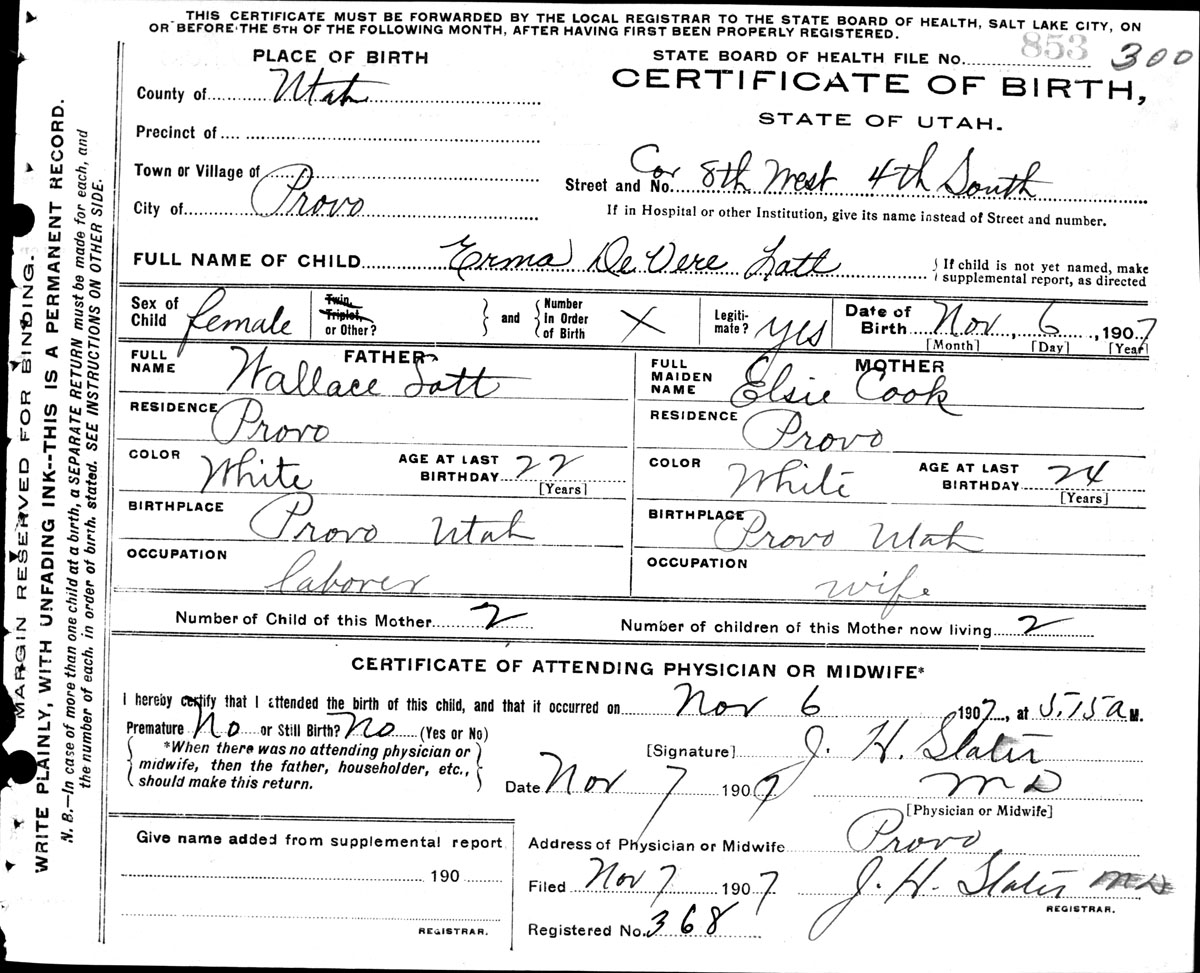 THIS CERTIFICATE MUST BE FORWARDED BY THE LOCAL REGISTRAR TO THE STATE BOARD OF HEALTH, SALT LAKE CITY, ON
OR BEFORE THE 5TH OF THE FOLLOWING MONTH, AFTER HAVING FIRST BEEN PROPERLY REGISTERED.
PLACE OF BIRTH
STATE BOARD OF HEALTH FILE No. 853 300
CERTIFICATE OF BIRTH,
STATE OF UTAH.
County of Utah
Precinct of
Town or Village of
City of Provo
Street and No. Cor 8th West 4th South
If in Hospital or other Institution, give its name instead of Street and number.
FULL NAME OF CHILD Erma DeVere Lott
If child is not yet named, make
supplemental report, as directed
Sex of Child female
Twin, Triplet, or Other? and Number In Order of Birth X
Legiti-mate? yes
Date of Birth Nov 6, 1907
[Month] [Day] [Year]
FATHER
FULL NAME Wallace Lott
RESIDENCE Provo
COLOR White AGE AT LAST BIRTHDAY 22
[Years]
BIRTHPLACE Provo Utah
OCCUPATION laborer
MOTHER
FULL MAIDEN NAME Elsie Cook
RESIDENCE Provo
COLOR White AGE AT LAST BIRTHDAY 24
[Years]
BIRTHPLACE Provo Utah
OCCUPATION wife
Number of Child of this Mother 2 Number of children of this Mother now living 2
CERTIFICATE OF ATTENDING PHYSICIAN OR MIDWIFE*
I hereby certify that I attended the birth of this child, and that it occurred on Nov 6 1907, at 5.15 a M.
Premature No or Still Birth? No (Yes or No)
*When there was no attending physician or
midwife, then the father, householder, etc.,
should make this return.
[Signature] J. H. Slater
M D
[Physician or Midwife]
Date Nov 7 1907
Address of Physician or Midwife Provo
Filed Nov 7 1907 J. H. Slater MD
REGISTRAR.
Registered No. 368
Give name added from supplemental report
190
REGISTRAR.
MARGIN RESERVED FOR BINDING.
WRITE PLAINLY, WITH UNFADING INK--THIS IS A PERMANENT RECORD.
N. B.—In case of more than one child at a birth, a SEPARATE RETURN must be made for each, and
the number of each, in order of birth, stated. SEE INSTRUCTIONS ON OTHER SIDE.